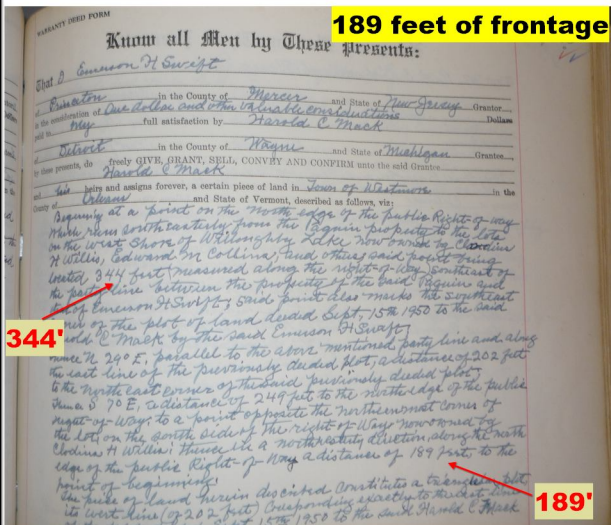 189 feet of frontage
WARRANTY DEED FORM
Know all Men by These Presents:
That I Emerson H Swift
of Princeton in the County of Mercer and State of New Jersey Grantor
in the consideration of One dollar and other valuable considerations Dollars
paid to my full satisfaction by Harold C Mack
of Detroit in the County of Wayne and State of Michigan Grantee,
by these presents, do freely GIVE, GRANT, SELL, CONVEY AND CONFIRM unto the said Grantee
Harold C Mack
and his heirs and assigns forever, a certain piece of land in Town of Westmore in the
County of Orleans and State of Vermont, described as follows, viz:
Beginning at a point on the North edge of the public Right-of-way
which runs southeasterly from the Paquin property to the lots
on the west shore of Willoughby Lake now owned by Clodina
H Willis, Edward M Collins, and others, said point being
located 344 feet (measured along the right-of-way) southeast of
the party line between the property of the said Paquin and
of Emerson H Swift; said point also marks the Southeast
of the plot of land deeded Sept, 15th 1950 to the said
344'
Harold C Mack by the said Emerson H Swift;
thence N 29° E, parallel to the above mentioned party line and along
the east line of the previously deeded plot, a distance of 202 feet
to the northeast corner of the said previously deeded plot;
thence S 70 E, a distance of 249 feet to the north edge of the public
right-of-way, to a point opposite the northernmost corner of
the lot, on the south side of the right-of-way now owned by
Clodina H Willis; thence in a northwesterly direction, along the north
edge of the public Right-of-Way a distance of 189 feet, to the
point of beginning.
The piece of land herein described constitutes a triangular plot,
its west line (of 202 feet) corresponding exactly to the east line
189'
15th 1950 to the said Harold C Mack